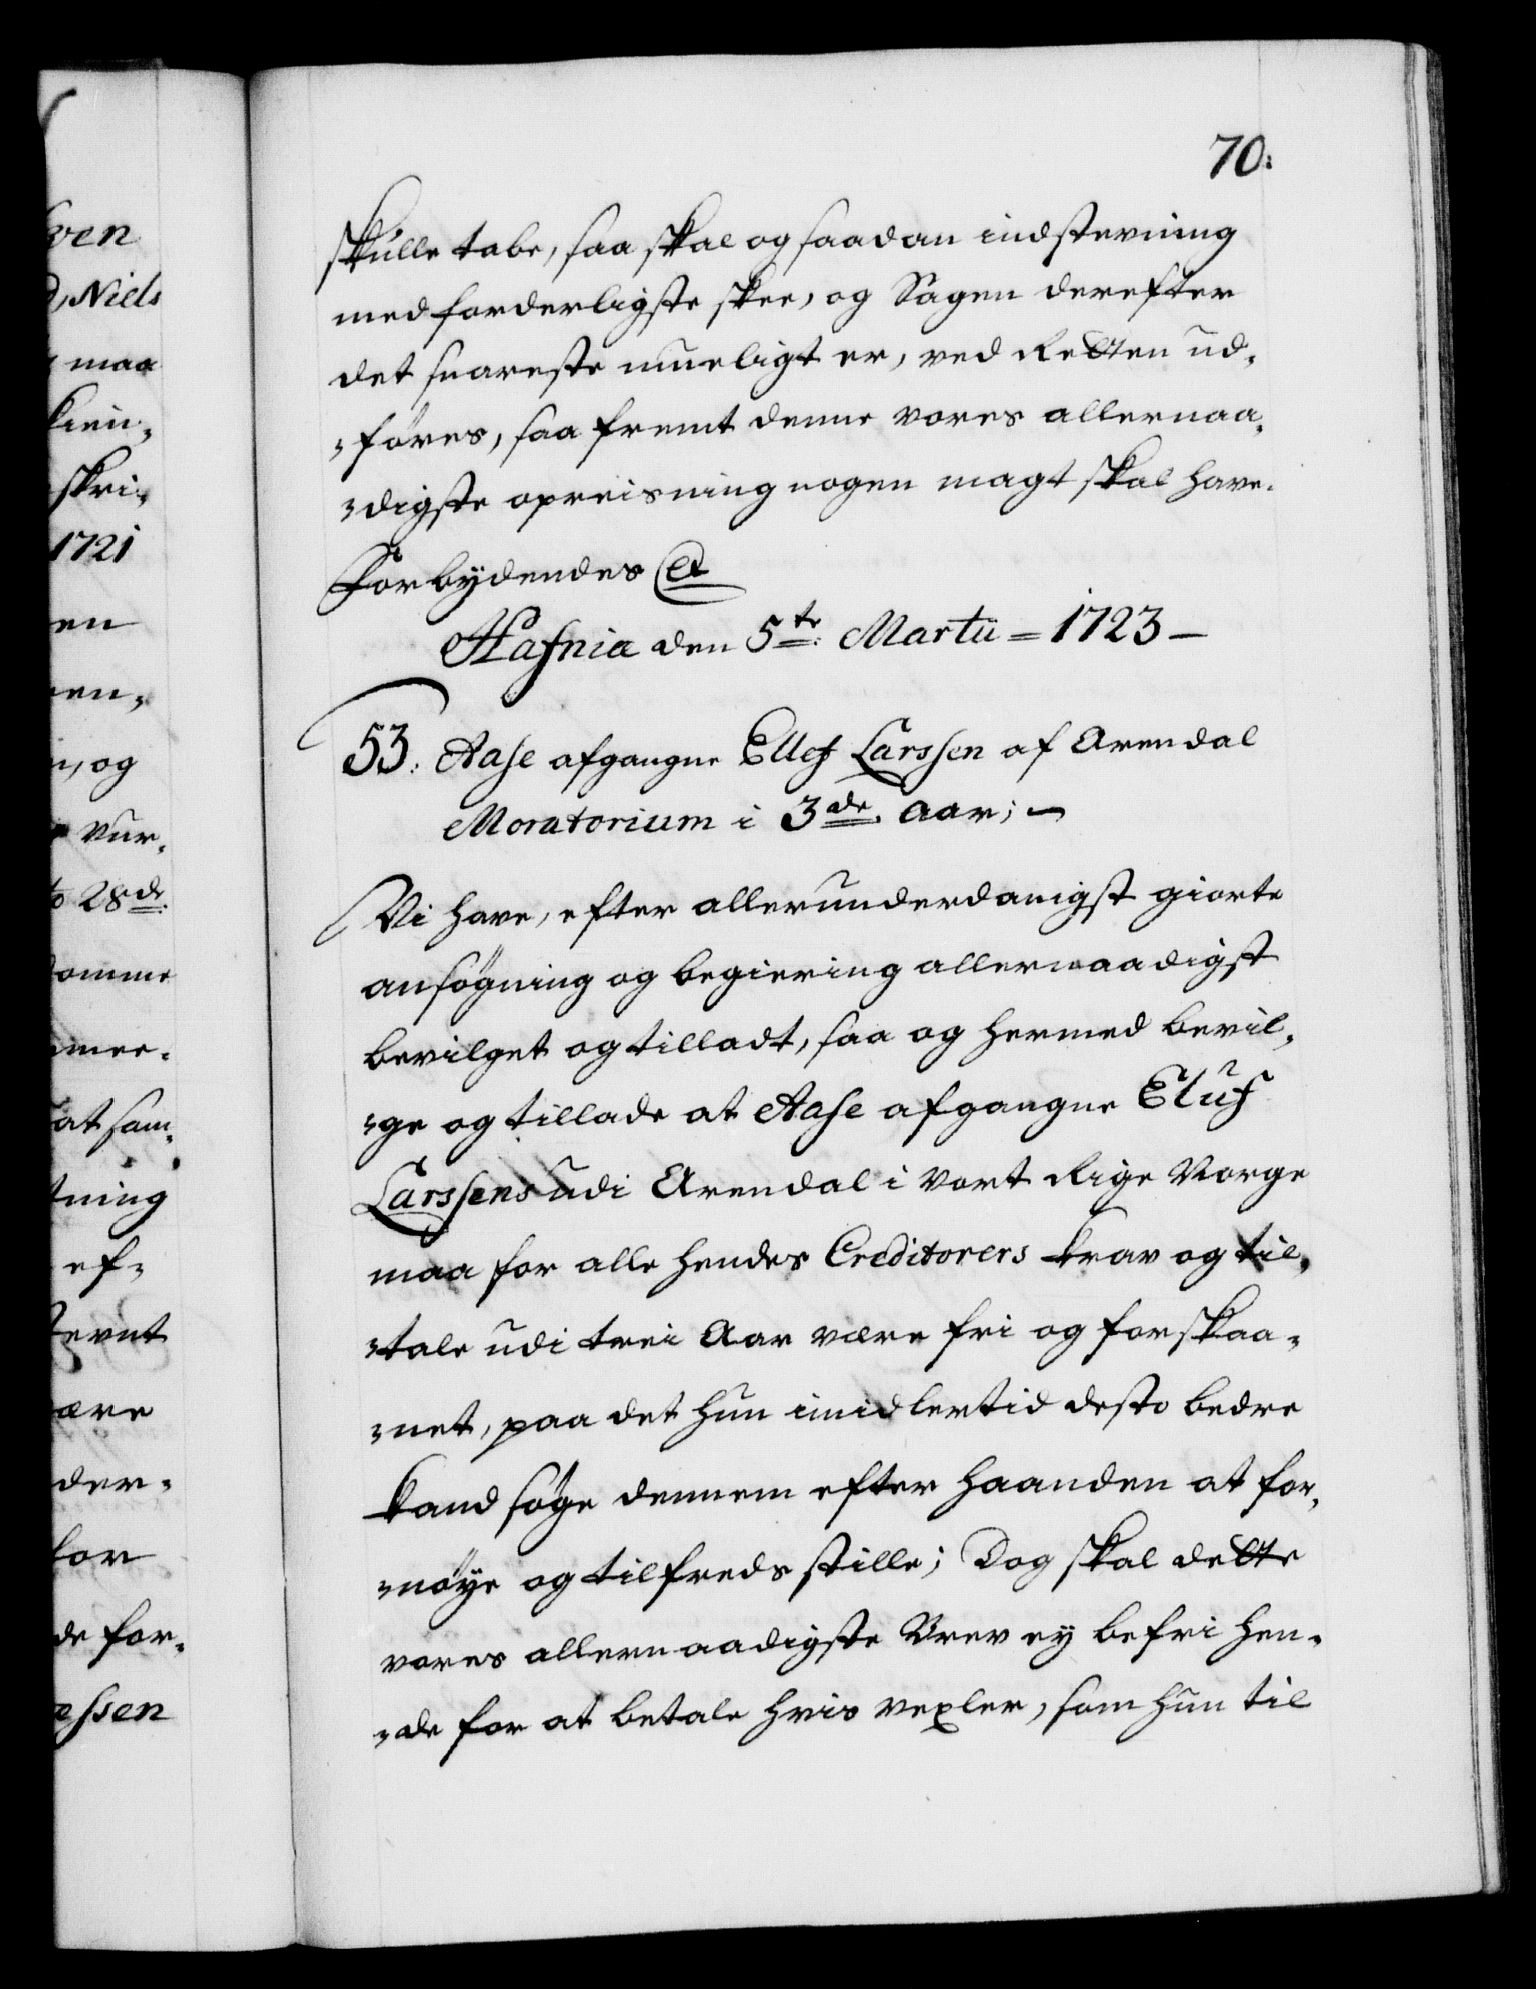 70.
skulle tabe, saa skal og saadan indstevning
med forderligste skee, og Sagen derefter
det snareste mueligt er, ved Retten ud-
-føres, saa fremt denne vores allernaa-
-digste opreisning nogen magt skal have.
Forbydendes etc
Hafnia den 5te: Martii = 1723 –
53. Aase afgangne Ellef Larssen af Arendal
Moratorium i 3de Aar; –
Vi have, efter allerunderdanigst giorte
ansøgning og begiering allernaadigst
bevilget og tilladt, saa og hermed bevil-
-ge og tillade at Aase afgangne Eluf
Larssens udi Arendal i vort Rige Norge
maa for alle hendes Creditorers krav og til-
-tale udi trei Aar være fri og forskaa-
-net, paa det hun imidlertid desto bedre
kand søge dennem efter haanden at for-
-nøye og tilfreds stille; Dog skal dette
vores allernaadigste Brev ey befri hen-
-de for at betale hvis vexler, som hun til
ven
Niels
maa
kien-
skri-
1721
en
en-
og
vur-
28de
omme
mer-
at sam-
tning
ef-
evnt
ære
der-
for
de for-
essen